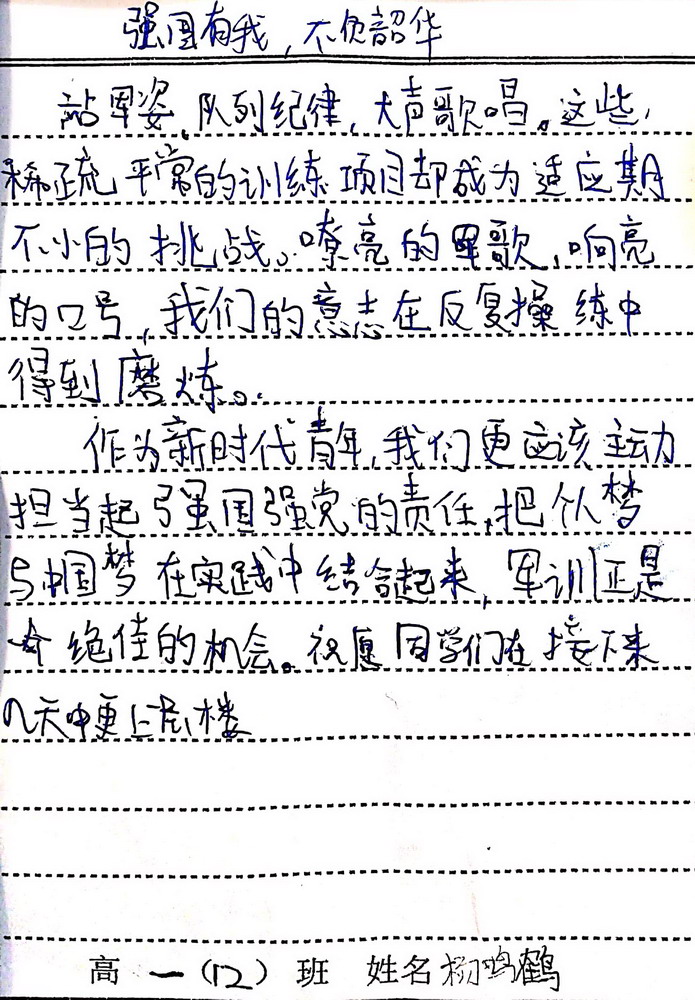 强国有我，不负韶华
站军姿、队列纪律，大声歌唱。这些
稀疏平常的训练项目却成为适应期
不小的挑战。嘹亮的军歌，响亮
的口号，我们的意志在反复操练中
得到磨炼。
作为新时代青年，我们更应该主动
担当起强国强党的责任，把个人梦
与中国梦在实践中结合起来，军训正是
个绝佳的机会。祝愿同学们在接下来
几天中更上层楼
高一（12）班 姓名 杨鸣鹤